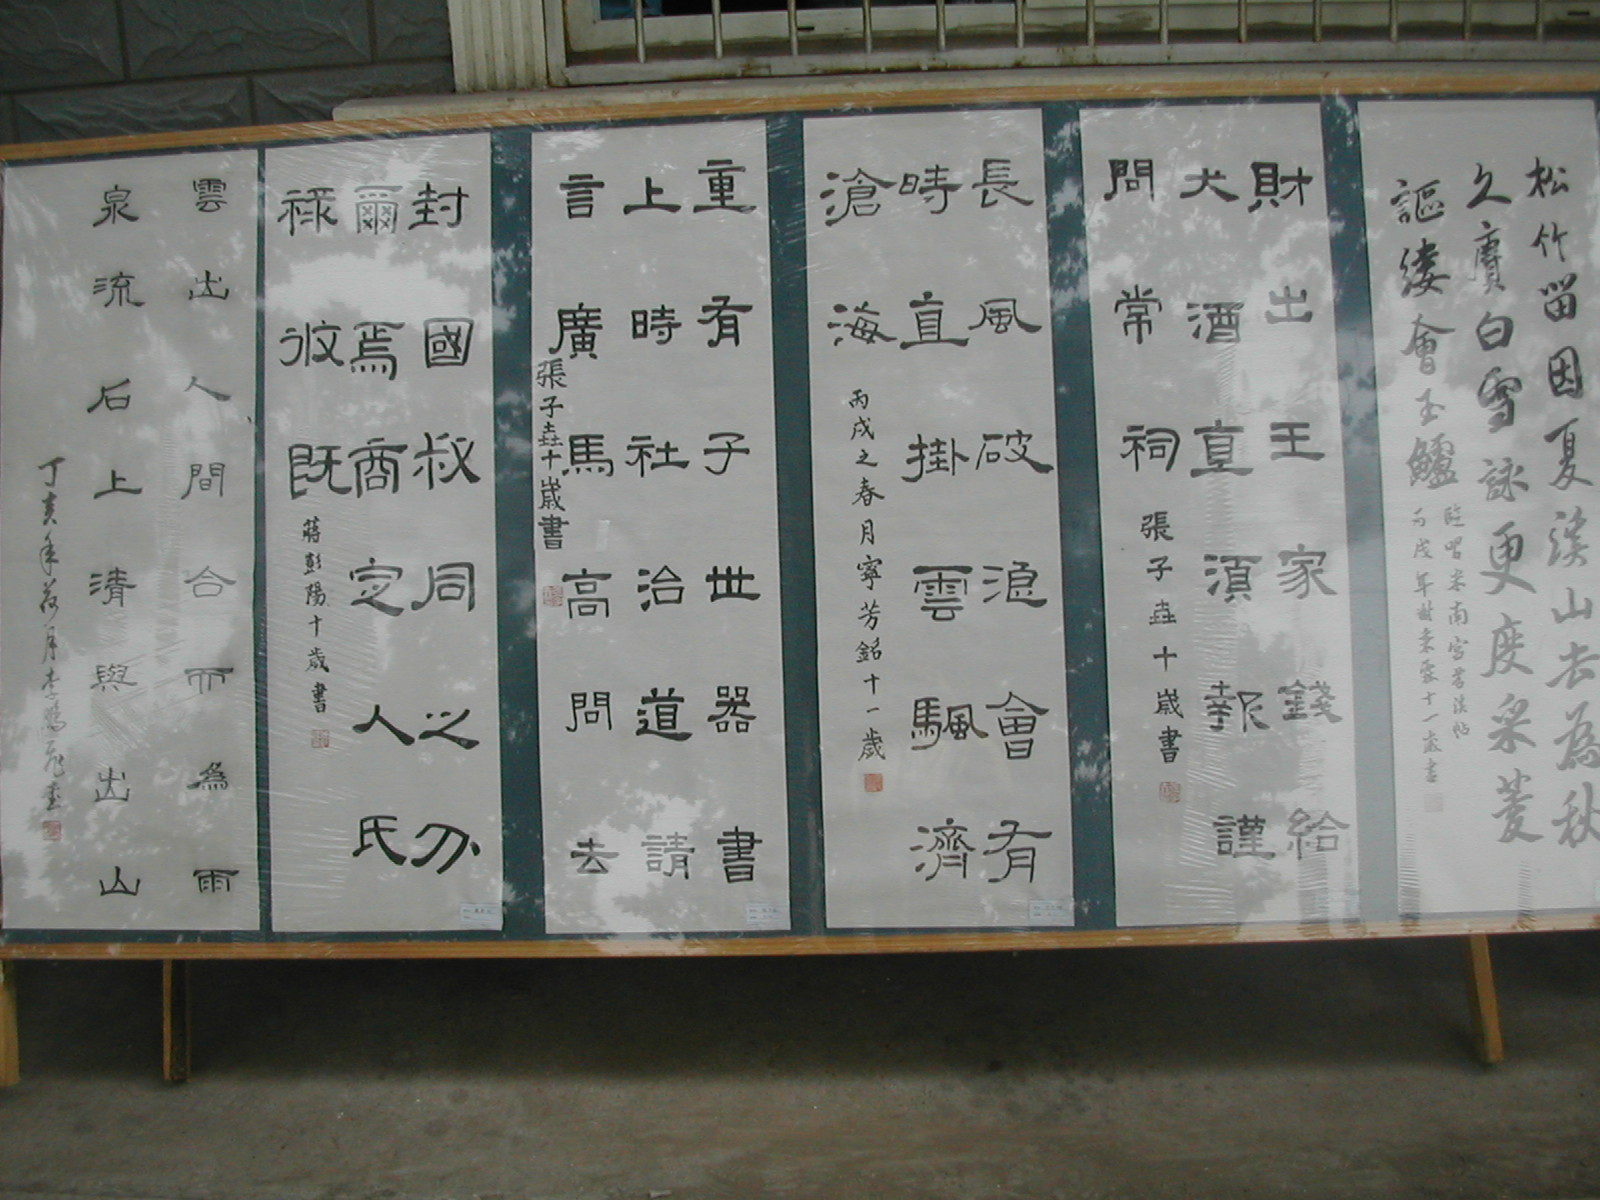 松竹留因夏溪山去為秋
久賡白雪詠更度采菱
謳縷會玉鱸
臨習米南宮蜀溪帖
財出王家錢給
犬酒直須報謹
問常祠
張子垚十歲書
長風破浪會有
時直掛雲颿濟
滄海
丙戌之春月寧芳銘十一歲
重有子世器書
上時社治道請
言廣馬高問去
張子垚十歲書
封國叔同之分
爾焉商定人氏
祿攸既
蔣彭陽十歲書
雲出人間合而為雨
泉流石上清與出山